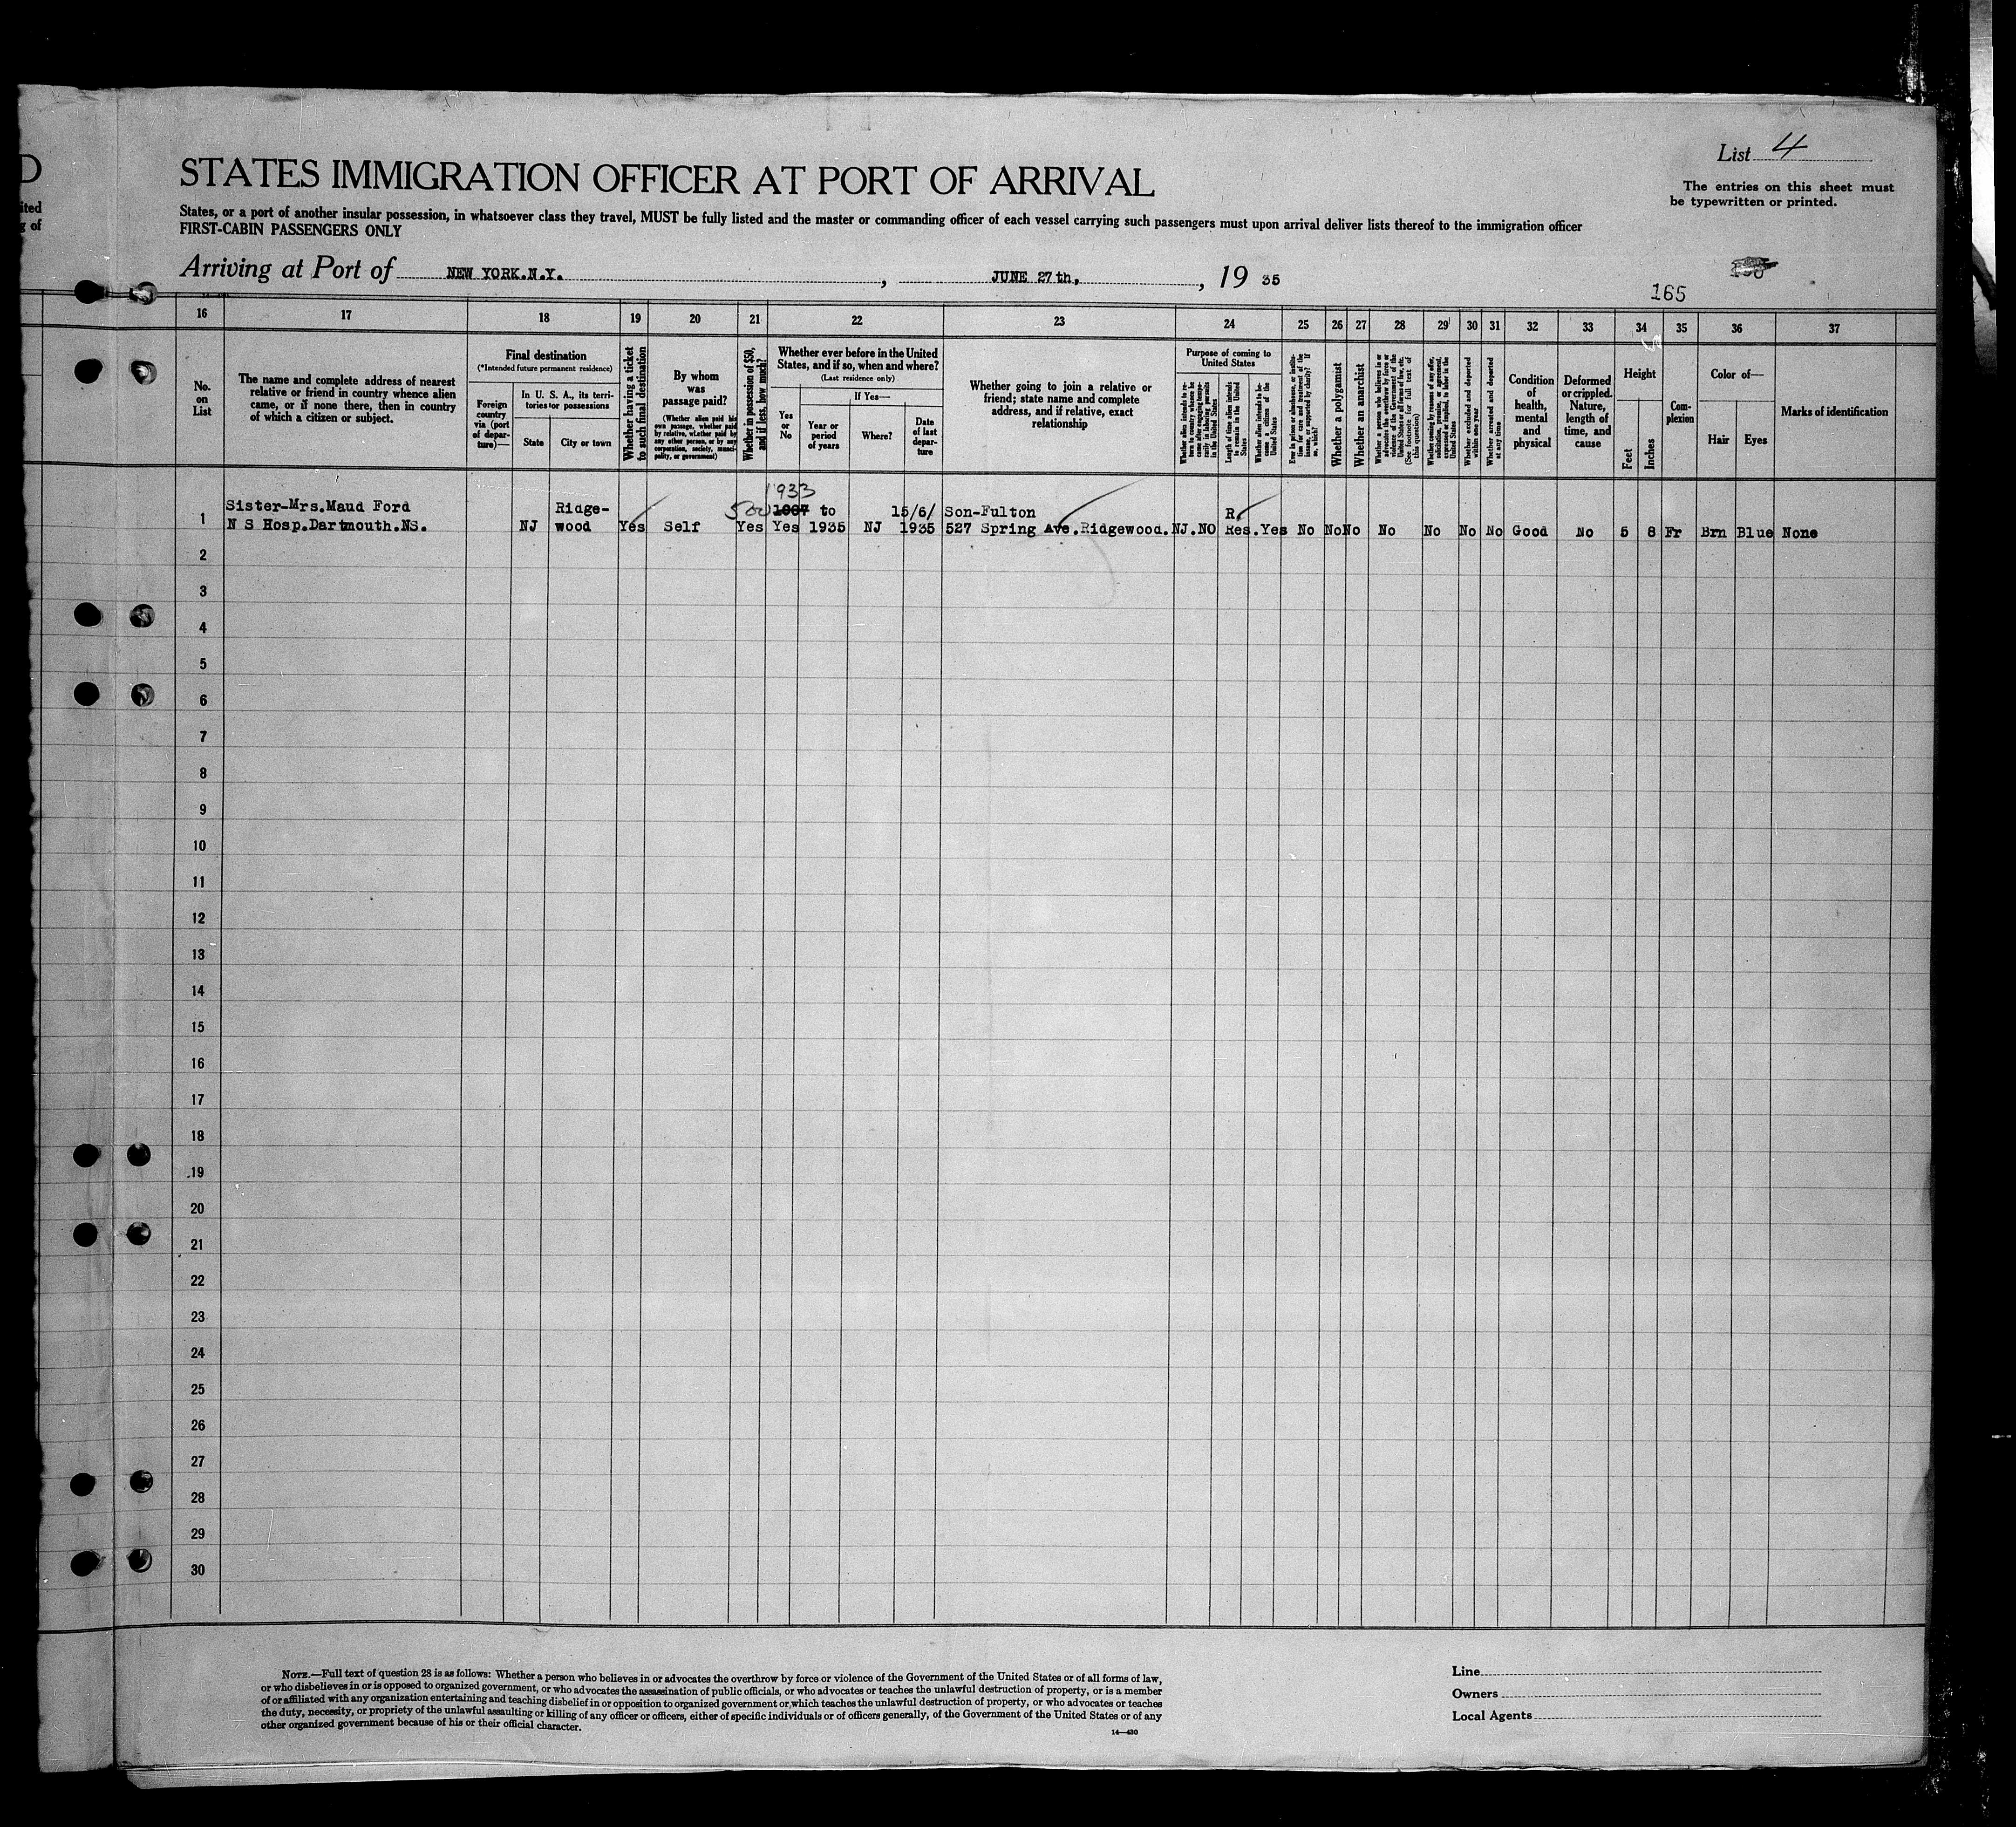 D
ited
g of
List 4
The entries on this sheet must
be typewritten or printed.
STATES IMMIGRATION OFFICER AT PORT OF ARRIVAL
States, or a port of another insular possession, in whatsoever class they travel, MUST be fully listed and the master or commanding officer of each vessel carrying such passengers must upon arrival deliver lists thereof to the immigration officer
FIRST-CABIN PASSENGERS ONLY
Arriving at Port of NEW YORK.N.Y. , JUNE 27th, , 19 35
165
16 17 18 19 20 21 22 23 24 25 26 27 28 29 30 31 32 33 34 35 36 37
No.
on
List
The name and complete address of nearest
relative or friend in country whence alien
came, or if none there, then in country
of which a citizen or subject.
Final destination
(*Intended future permanent residence)
Foreign
country
via (port
of depar-
ture)—
In U. S. A., its terri-
tories or possessions
State
City or town
Whether having a ticket
to such final destination
By whom
was
passage paid?
(Whether alien paid his
own passage, whether paid
by relative, whether paid by
any other person, or by any
corporation, society, munici-
pality, or government)
Whether in possession of $50,
and if less, how much?
Whether ever before in the United
States, and if so, when and where?
(Last residence only)
Yes
or
No
If Yes—
Year or
period
of years
Where?
Date
of last
depar-
ture
Whether going to join a relative or
friend; state name and complete
address, and if relative, exact
relationship
Purpose of coming to
United States
Whether alien intends to re-
turn to country whence he
came after engaging tempo-
rarily in laboring pursuits
in the United States
Length of time alien intends
to remain in the United
States
Whether alien intends to be-
come a citizen of the
United States
Ever in prison or almshouse, or institu-
tion for care and treatment of the
insane, or supported by charity? If
so, which?
Whether a polygamist
Whether an anarchist
Whether a person who believes in or
advocates the overthrow by force or
violence of the Government of the
United States or all forms of law, etc.
(See footnote for full text of
this question)
Whether coming by reason of any offer,
solicitation, promise, or agreement,
expressed or implied, to labor in the
United States
Whether excluded and deported
within one year
Whether arrested and deported
at any time
Condition
of
health,
mental
and
physical
Deformed
or crippled.
Nature,
length of
time, and
cause
Height
Feet
Inches
Com-
plexion
Color of—
Hair
Eyes
Marks of identification
1933
Sister-Mrs.Maud Ford Ridge- 500 1907 to 15/6/ Son-Fulton R.
1 N S Hosp.Dartmouth.NS. NJ wood Yes Self Yes Yes 1935 NJ 1935 527 Spring Ave.Ridgewood.NJ.NO Res.Yes No No No No No No No Good No 5 8 Fr Brn Blue None
2
3
4
5
6
7
8
9
10
11
12
13
14
15
16
17
18
19
20
21
22
23
24
25
26
27
28
29
30
NOTE.—Full text of question 28 is as follows: Whether a person who believes in or advocates the overthrow by force or violence of the Government of the United States or of all forms of law,
or who disbelieves in or is opposed to organized government, or who advocates the assassination of public officials, or who advocates or teaches the unlawful destruction of property, or is a member
of or affiliated with any organization entertaining and teaching disbelief in or opposition to organized government or which teaches the unlawful destruction of property, or who advocates or teaches
the duty, necessity, or propriety of the unlawful assaulting or killing of any officer or officers, either of specific individuals or of officers generally, of the Government of the United States or of any
other organized government because of his or their official character.
14—430
Line
Owners
Local Agents